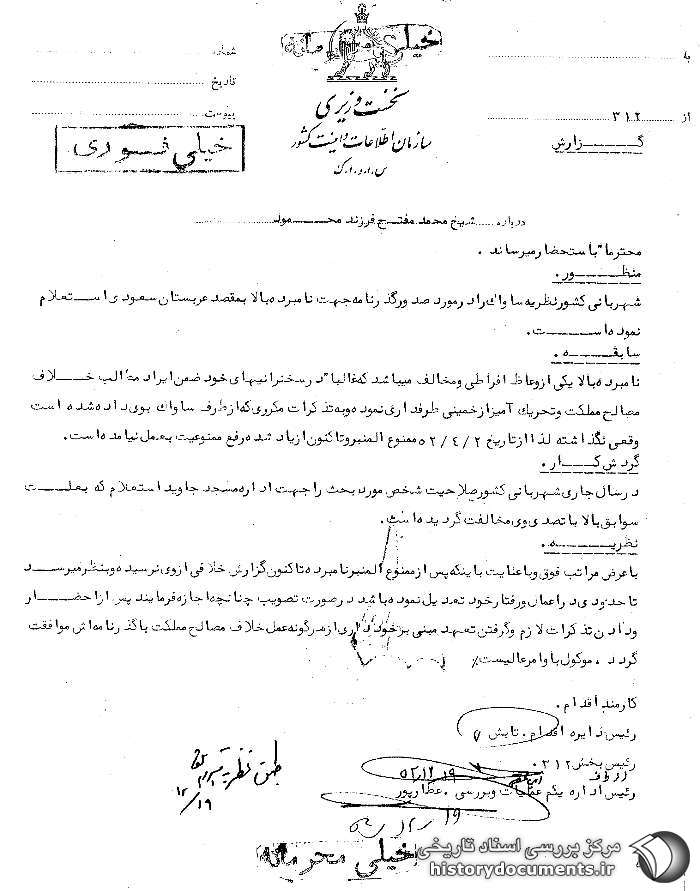 خیلی محرمانه
نخست وزیری
سازمان اطلاعات و امنیت کشور
س.ا.و.ا.ک
به
از ۳۱۲
گزارش
شماره
تاریخ
پیوست
خیلی فوری
درباره شیخ محمد مفتح فرزند محمود
محترما" باستحضار میرساند .
منظور .
شهربانی کشور نظریه ساواک را در مورد صدور گذرنامه جهت نامبرده بالا بمقصد عربستان سعودی استعلام
نموده است.
سابقه .
نامبرده بالا یکی از وعاظ افراطی و مخالف میباشد که غالبا" در سخنرانیهای خود ضمن ایراد مطالب خلاف
مصالح مملکت و تحریک آمیز از خمینی طرفداری نموده و به تذکرات مکرری که از طرف ساواک بوی داده شده است
وقعی نگذاشته لذا از تاریخ ۵۲/۴/۲ ممنوع المنبر و تاکنون از یاد شده رفع ممنوعیت بعمل نیامده است.
گردش کار .
در سال جاری شهربانی کشور صلاحیت شخص مورد بحث را جهت اداره مسجد جاوید استعلام که بعلت
سوابق بالا با تصدی وی مخالفت گردیده است.
نظریه .
با عرض مراتب فوق و با عنایت باینکه پس از ممنوع المنبر نامبرده تاکنون گزارش خلافی از وی نرسیده و بنظر میرسد
تا حدودی در اعمال و رفتار خود تعدیل نموده باشد در صورت تصویب چنانچه اجازه فرمایند پس از احضار
و دادن تذکرات لازم و گرفتن تعهد مبنی بر خودداری از هرگونه عمل خلاف مصالح مملکت با گذرنامه اش موافقت
گردد ، موکول باوامر عالیست٪
کارمند اقدام .
رئیس دایره اقدام . تابش
رئیس بخش ۳۱۲ .
رئیس اداره یکم عملیات و بررسی . عطارپور
طبق نظریه
۱۲/۱۹
خیلی محرمانه
مرکز بررسی اسناد تاریخی
historydocuments.ir